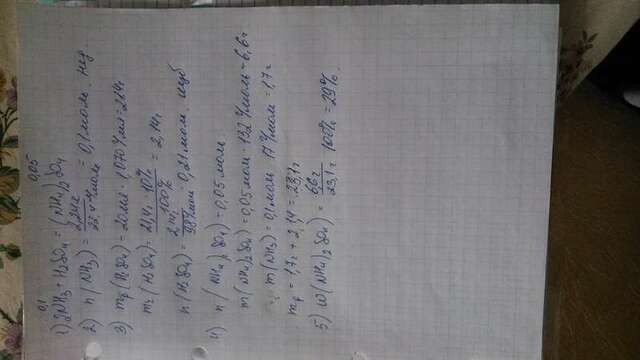 0,1 0,05
1) 2NH3 + H2SO4 = (NH4)2SO4
2) n(NH3) = 2,24л / 22,4 л/моль = 0,1 моль. нед
3) mр(H2SO4) = 20мл · 1,070 г/мл = 21,4г
mв(H2SO4) = 21,4г · 10% / 100% = 2,14г
n(H2SO4) = 2,14г / 98 г/моль = 0,21 моль. изб
4) n(NH4)2SO4) = 0,05 моль
m(NH4)2SO4) = 0,05 моль · 132 г/моль = 6,6г
m(NH3) = 0,1 моль · 17 г/моль = 1,7г
mр = 1,7г + 21,4 = 23,1г
5) ω(NH4)2SO4) = 6,6г / 23,1г · 100% = 29%.